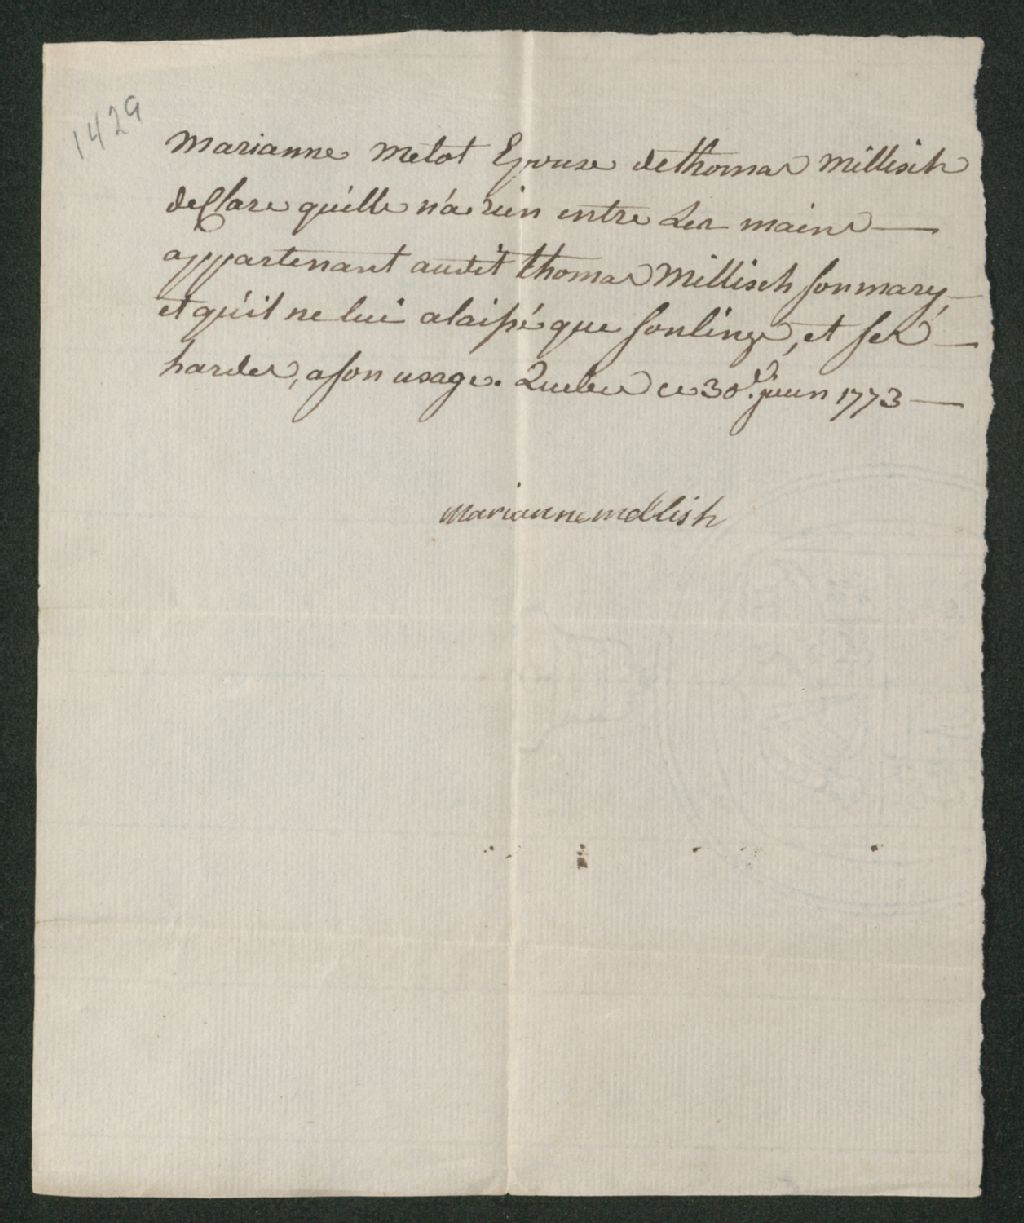 1429
Marianne Metot Epouse de thomas Millisch
declare quelle n'a rien entre Les mains
appartenant audit thomas Millisch son mary,
et qu'il ne lui a laissé que son linge, et ses
hardes, a son usage. Quebec ce 30.e juin 1773
marianne mellish